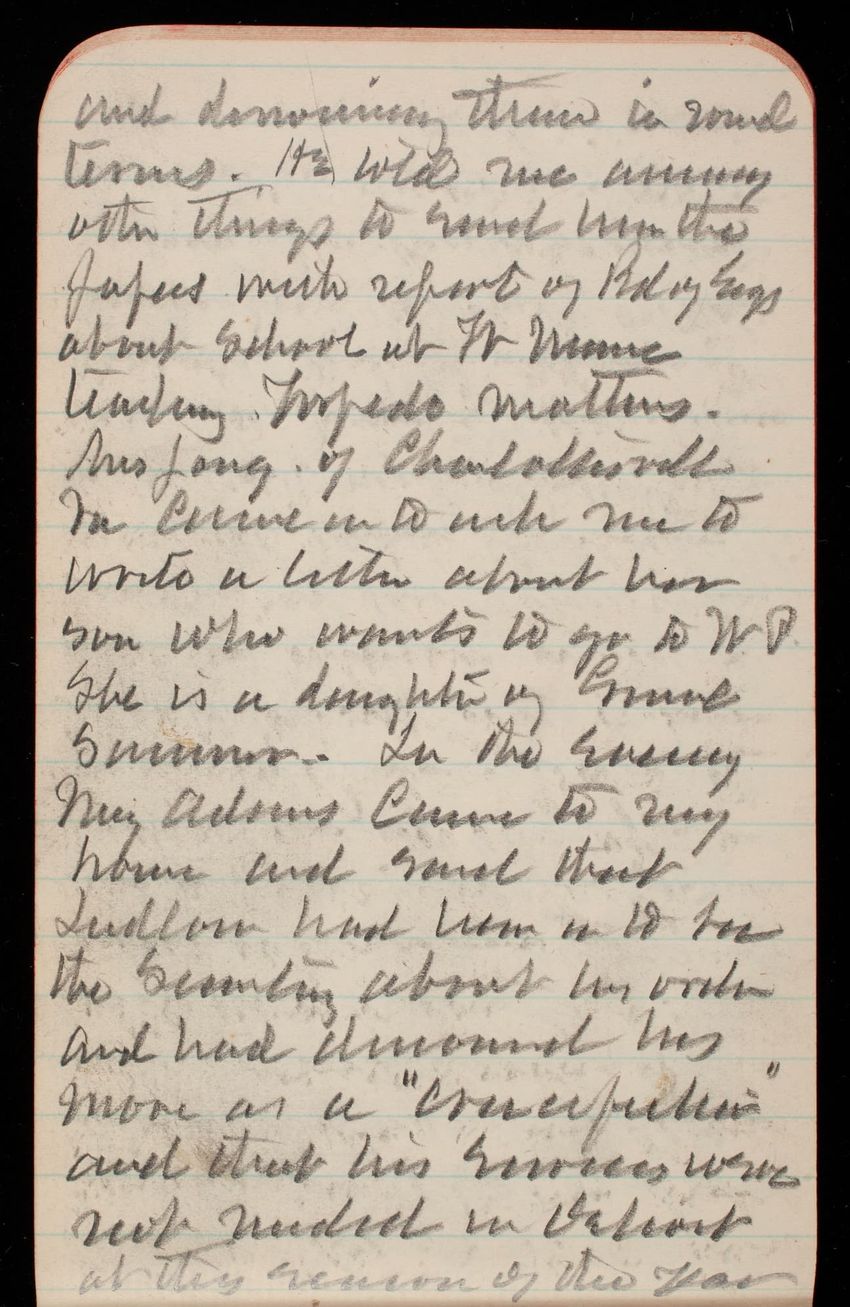 and denouncing them in round
terms. He told me among
other things to send him the
papers with report of Bd of Engs
about School at W
teaching Torpedo matters.
Mrs Long. of Charlottesville
Va came in to ask me to
write a letter about her
son who wants to go to W P.
She is a daughter of Genl
Sumner. In the evening
Maj Adams came to my
house and said that
Ludlow had been in to see
the Secretary about his order
and had denounced his
move as a "crucifixion"
and that his services were
not needed in Detroit
at this season of the year